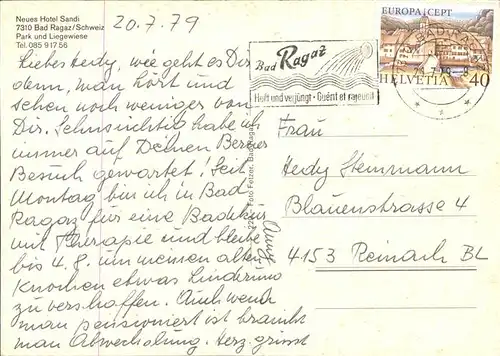 Neues Hotel Sandi
7310 Bad Ragaz/Schweiz
Park und Liegewiese
Tel. 085 917 56
20.7.79
Liebes Hedy, wie geht es Dir
denn, man hört und
sehen noch weniger von
Dir. Sehnsüchtig habe ich
immer auf Deinen Berner
Besuch gewartet! Seit
Montag bin ich in Bad
Ragaz für eine Badekur
mit Therapie und bleibe
bis 4.8. um meinen alten
Knochen etwas Linderung
zu verschaffen. Auch wenn
man pensioniert ist braucht
man Abwechslung. Herz. grüsst
Foto Fetzer, Bad Ragaz
Bad Ragaz
Heilt und verjüngt - Guérit et rajeunit
EUROPA CEPT
HELVETIA 40
Frau
Hedy Steinmann
Blauenstrasse 4
4153 Reinach BL